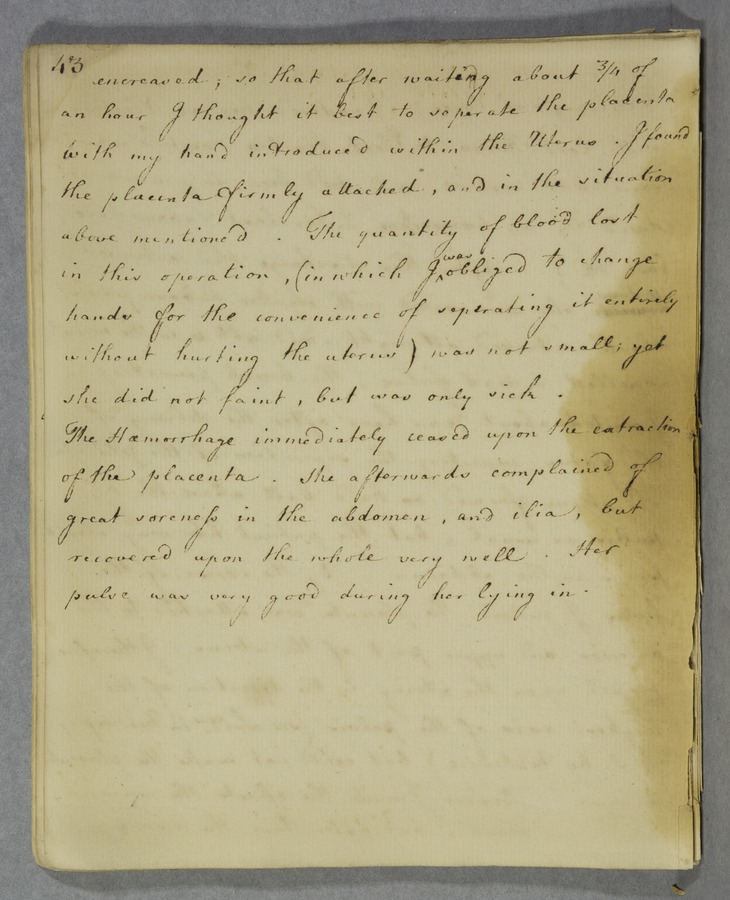 43
encreased ; so that after waiting about 3/4 of
an hour I thought it best to seperate the placenta
with my hand introduced within the Uterus . I found
the placenta firmly attached , and in the situation
above mentioned . The quantity of blood lost
in this operation , (in which I was obliged to change
hands for the convenience of seperating it entirely
without hurting the uterus ) was not small ; yet
she did not faint , but was only sick .
The Hæmorrhage immediately ceased upon the extraction
of the placenta . She afterwards complained of
great soreness in the abdomen , and ilia , but
recovered upon the whole very well . Her
pulse was very good during her lying in .